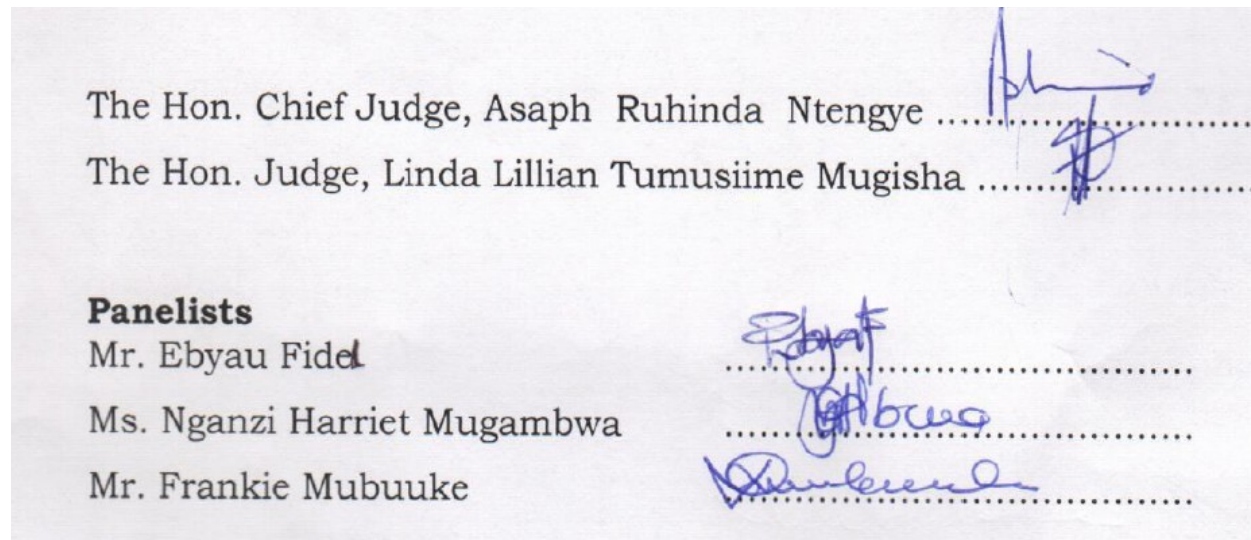 The Hon. Chief Judge, Asaph Ruhinda Ntengye ........................
The Hon. Judge, Linda Lillian Tumusiime Mugisha ........................
Panelists
Mr. Ebyau Fidel ........................
Ms. Nganzi Harriet Mugambwa ........................
Mr. Frankie Mubuuke ........................